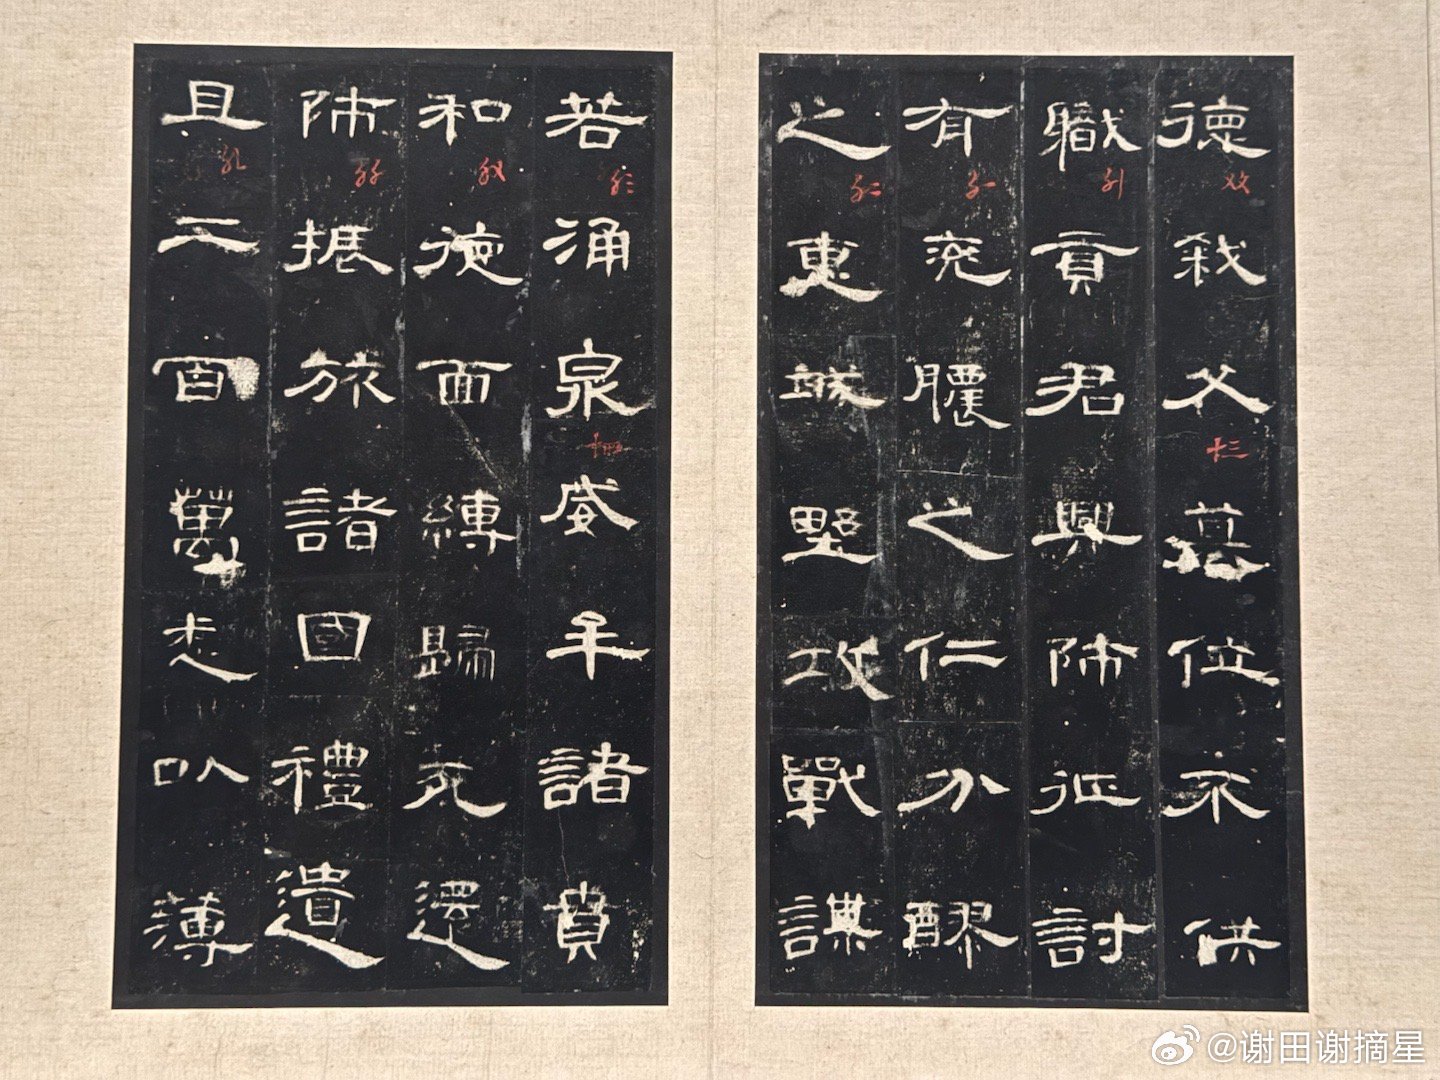 德弒父篡位不供
職貢君興師征討
有兗膿之仁分醪
之惠城野攻戰謀
若涌泉威牟諸賁
和德面縛歸死還
師振旅諸國禮遺
且二百萬悉以薄
十三
@谢田谢摘星